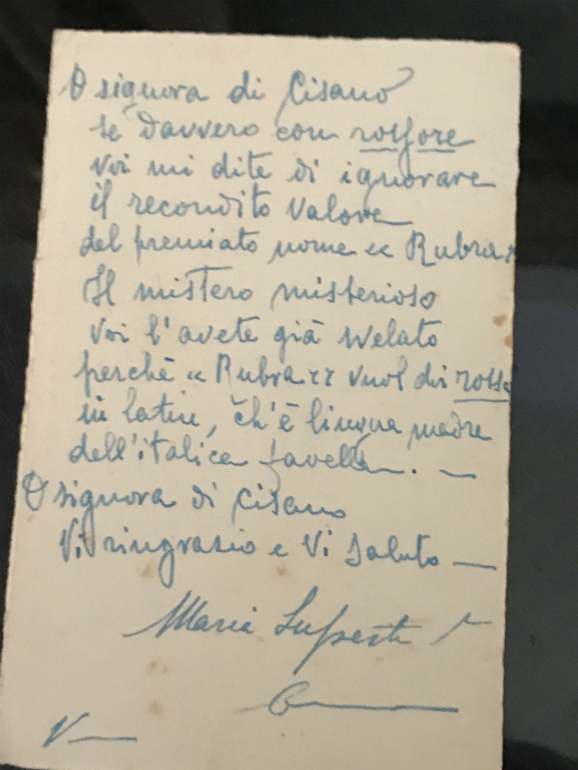 O signora di Cisano
se davvero con rossore
voi mi dite di ignorare
il recondito valore
del premiato nome « Rubra »
Il mistero misterioso
voi l'avete già svelato
perchè « Rubra » vuol dir rossa
in latin, ch'è lingua madre
dell'italica favella. —
O signora di Cisano
Vi ringrazio e Vi saluto —
Maria
V